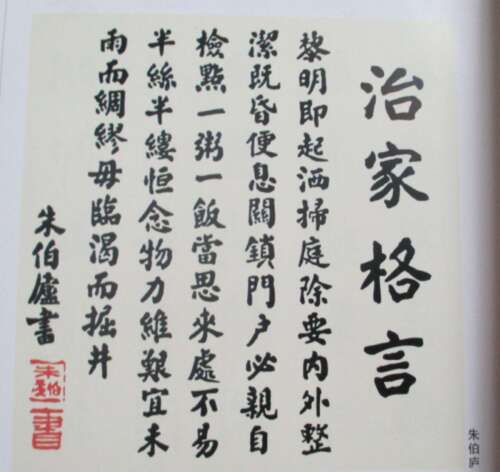 治家格言
黎明即起洒掃庭除要内外整
潔既昏便息關鎖門戶必親自
檢點一粥一飯當思來處不易
半絲半縷恒念物力維艱宜未
雨而綢繆毋臨渴而掘井
朱伯廬書
朱伯庐